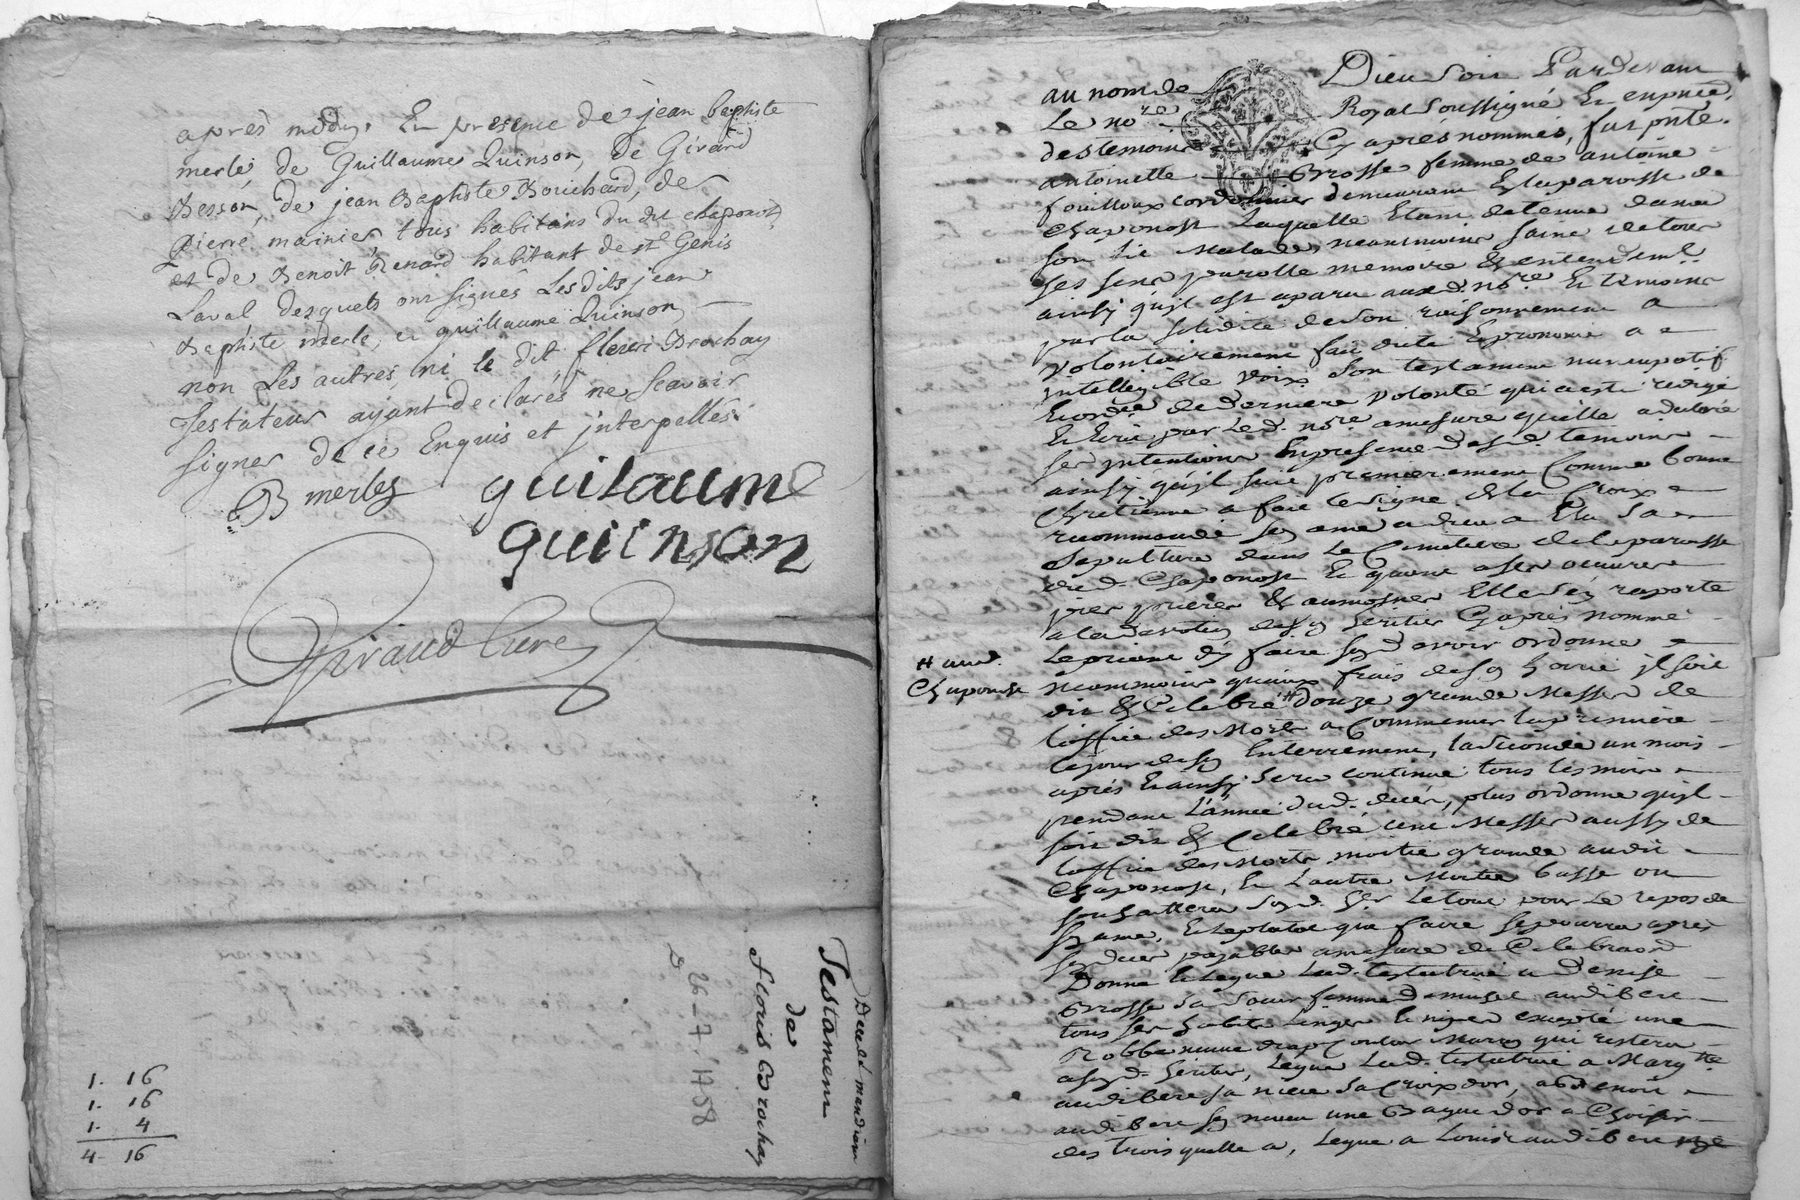 après midy, En presence de jean baptiste
merle de Guillaume Quinson, de Girard
Besson, de jean Baptiste Bouchard, de
pierre mainier tous habitans du dit chaponost
et de Benoit Benard habitant de st Genis
Laval desquels ont signés Lesdits jean
Baptiste merle, et guillaume Quinson
non Les autres, ni le dit fleuri Brochay
Testateur ayant declarés ne scavoir
signer de ce Enquis et interpellés.
B merle
guilaume
quiinson
Giraud Curé
Testament
de
floris Brochay
26 - 7 1758
1. 16
1. 16
1. 4
4. 16
au nom de Dieu soit Pardevant
Le nore Royal soussigné et en pnce
des temoins Cy après nommés, fut pnte
antoinette Grosse femme de antoine
fouilloux cordonnier demeurant Et la paroisse de
Chaponost Laquelle Etant detenue dans
son lit Malade, neanmoins saine de tous
ses sens parolle memoire & entendemt
ainsy qu'jl est aparu aud. nore Et temoins
par la solidité de son raisonnement a
volontairement fait dicté Et prononcé a
intelligible voix son testament nuncupatif
Et ordce de derniere volonté qui a esté redigé
Et Ecrit par Led. nore amesure quelle a declaré
ses intentions En presence desd. temoins
ainsy qujl suit premierement Comme bonne
Chretienne a fait le signe de la Croix
recommandé son ame a dieu a Elu sa
sepulture dans Le Cimetiere de la paroisse
dud. Chaponost Et quant a ses oeuvres
pies prieres & aumosnes Elle s'en raporte
a la devotion de son heritier Cy après nommé
Le priant d'en faire son devoir ordonne
neanmoins qu'aux frais de son hoirie jl soit
dit & Celebré # douze grande Messes de
# aud.
Chaponost
l'office des Morts a Commencer la premiere
le jour de son Enterrement, la seconde un mois
après Et ainsy sera continué tous les mois
pendant L'année dud. decès, plus ordonne qujl
soit dit & Celebré cent Messes aussy de
l'office des Morts moitié grande audit
Chaponost, Et L'autre Moitié basse ou
souhaittera sond. her Le tout pour Le repos de
s. ame, Et le plutot que faire se pourra après
son decès payables amesure de Celebraon
Donne & Legue Lad. testatrice a Denise
Grosse sa soeur femme audibert
tous ses habits Linges Et nipes excepté une
Robbe neuve drap Couleur Maron qui restera
a sond. heritier, Legue Lad. testatrice a Margtte
audibert sa niece sa Croix d'or, a Benoit
audibert son neveu une Bague d'or a Choisir
des trois quelle a, Legue a Louise audibert